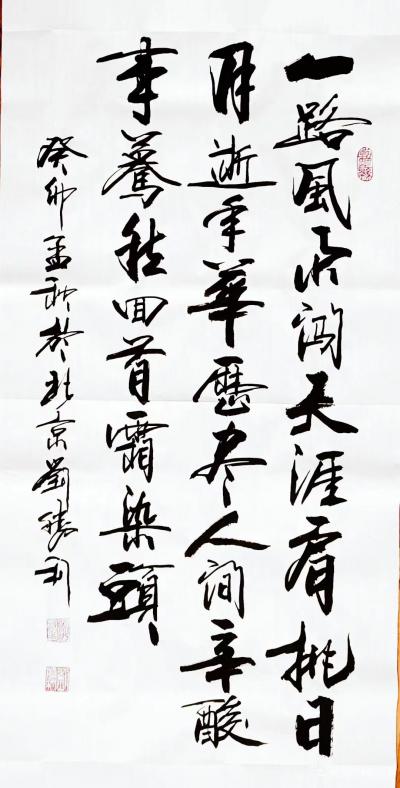 一路風雨闖天涯肩挑日
月逝年華歷盡人間辛酸
事驀然回首霜染頭
癸卯孟秋於北京劉勝利